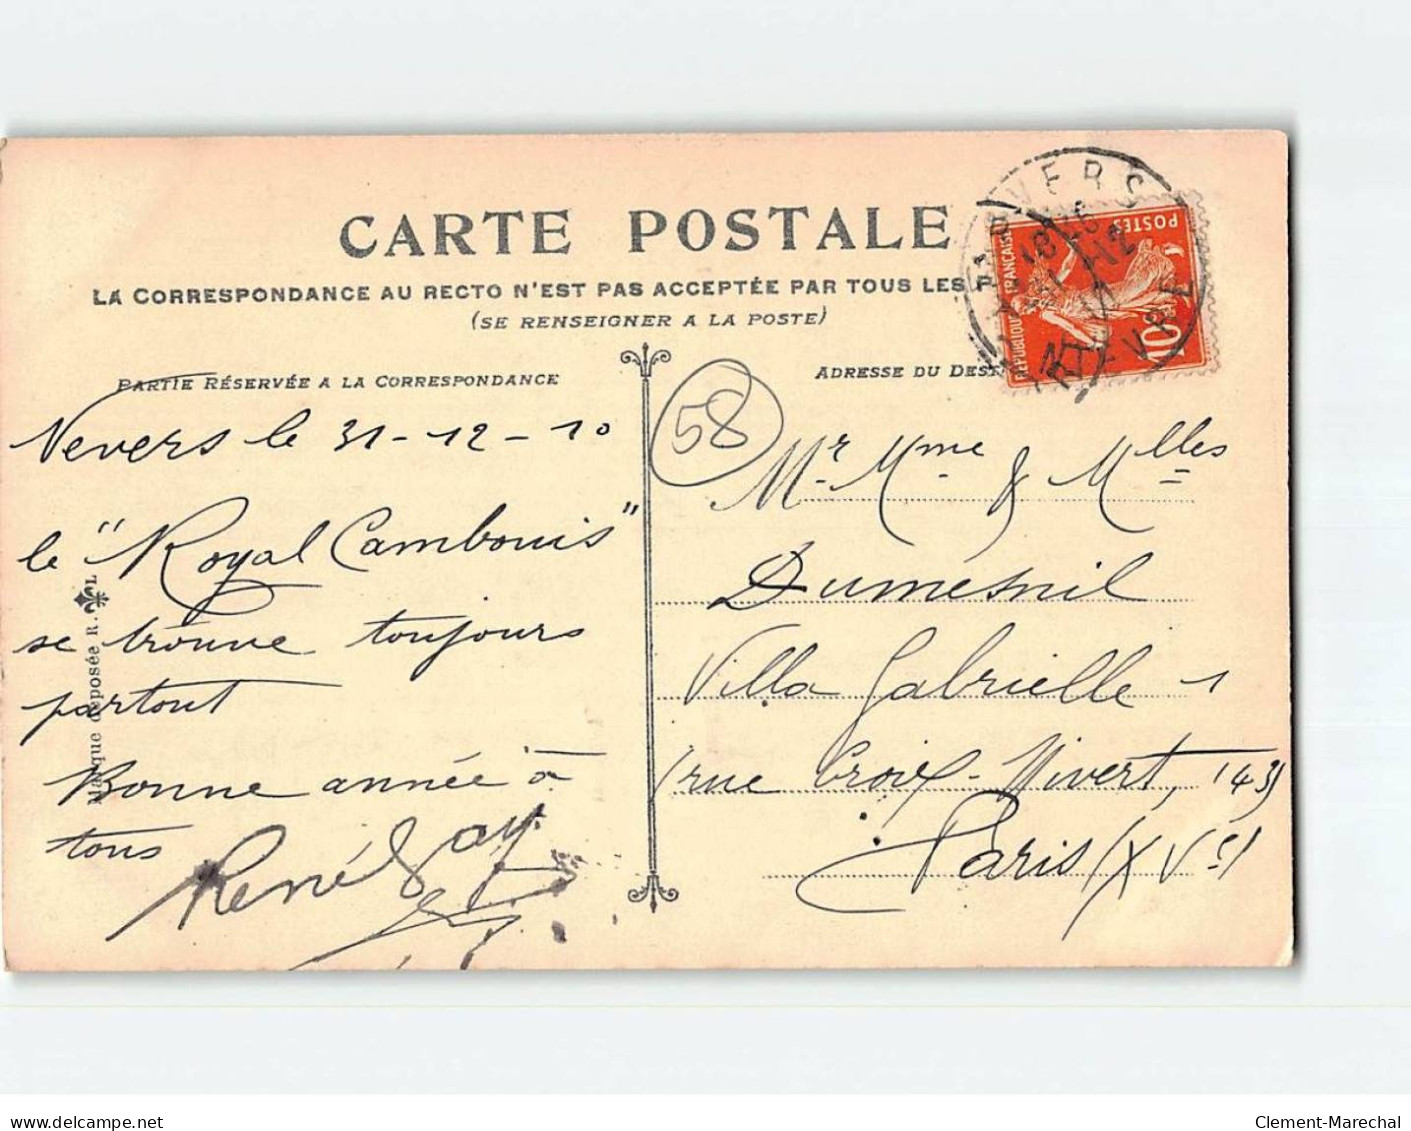 CARTE POSTALE
LA CORRESPONDANCE AU RECTO N'EST PAS ACCEPTÉE PAR TOUS LES
(SE RENSEIGNER A LA POSTE)
PARTIE RÉSERVÉE A LA CORRESPONDANCE
ADRESSE DU DEST
NEVERS
NIEVRE
POSTES
RÉPUBLIQUE FRANÇAISE
10c
58
Nevers le 31-12-10
le "Royal Cambouis"
se trouve toujours
partout
Bonne année à
tous
René
Marque déposée R. L
Mr Mme & Mlles
Dumesnil
Villa Gabrielle 1
(rue Croix-Nivert, 143)
Paris (XVe)
delcampe.net
Clement-Marechal